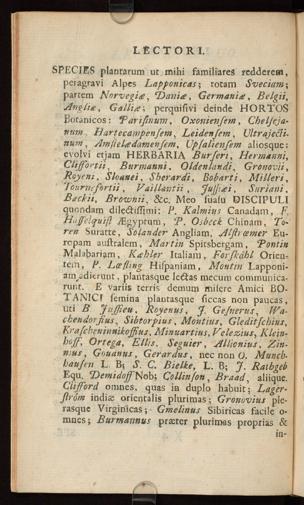 LECTORI.
SPECIES plantarum ut mihi familiares redderem,
peragravi Alpes Lapponicas; totam Sveciam;
partem Norvegiæ, Daniæ, Germaniæ, Belgii,
Angliæ, Galliæ; perquisivi deinde HORTOS
Botanicos: Parisinum, Oxoniensem, Chelseja-
num, Hartecampensem, Leidensem, Ultrajecti-
num, Amstelædamensem, Upsaliensem aliosque:
evolvi etjam HERBARIA Burseri, Hermanni,
Cliffortii, Burmanni, Oldenlandi, Gronovii,
Royeni, Sloanei, Sherardi, Bobarti, Milleri,
Tournefortii, Vaillantii, Jussiæi, Suriani,
Beckii, Brownii, &c. Meo suasu DISCIPULI
quondam dilectissimi: P. Kalmius Canadam, F.
Hasselquist Ægyptum, P. Osbeck Chinam, To-
ren Suratte, Solander Angliam, Alstrœmer Eu-
ropam australem, Martin Spitsbergam, Pontin
Malabariam, Kæhler Italiam, Forskåhl Orien-
tem, P. Lœfling Hispaniam, Montin Lapponi-
am adierunt, plantasque lectas mecum communica-
runt. E variis terris demum misere Amici BO-
TANICI semina plantasque siccas non paucas,
uti B. Jussieu, Royenus, J. Gesnerus, Wa-
chendorfius, Sibtorpius, Montius, Gleditschius,
Krascheninnikoffius, Minuartius, Velezius, Klein-
hoff, Ortega, Ellis, Seguier, Allionius, Zin-
nius, Gouanus, Gerardus, nec non O. Munch-
hausen L. B; S. C. Bielke, L. B; J. Rathgeb
Equ. Demidoff Nob; Collinson, Braad, aliique.
Clifford omnes, quas in duplo habuit; Lager-
ström indiæ orientalis plurimas; Gronovius ple-
rasque Virginicas; Gmelinus Sibiricas facile o-
mnes; Burmannus præter plurimas proprias &
in-